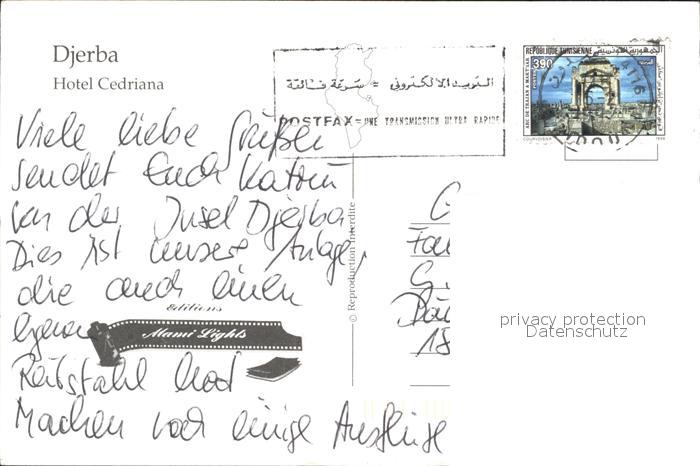 Djerba
Hotel Cedriana
REPUBLIQUE TUNISIENNE الجمهورية التونسية
390
ARC DE TRAJAN A MAKTHAR
البريد الالكتروني = سرعة فائقة
POSTFAX = UNE TRANSMISSION ULTRA RAPIDE
Viele liebe Grüße
sendet Euch Katrin
von der Insel Djerba
Dies ist unsere Anlage,
die auch einen
eigenen
Reitstahl hat
Machen noch einige Ausflüge
Editions
Mami Lights
© Reproduction Interdite
Fam
18
privacy protection
Datenschutz